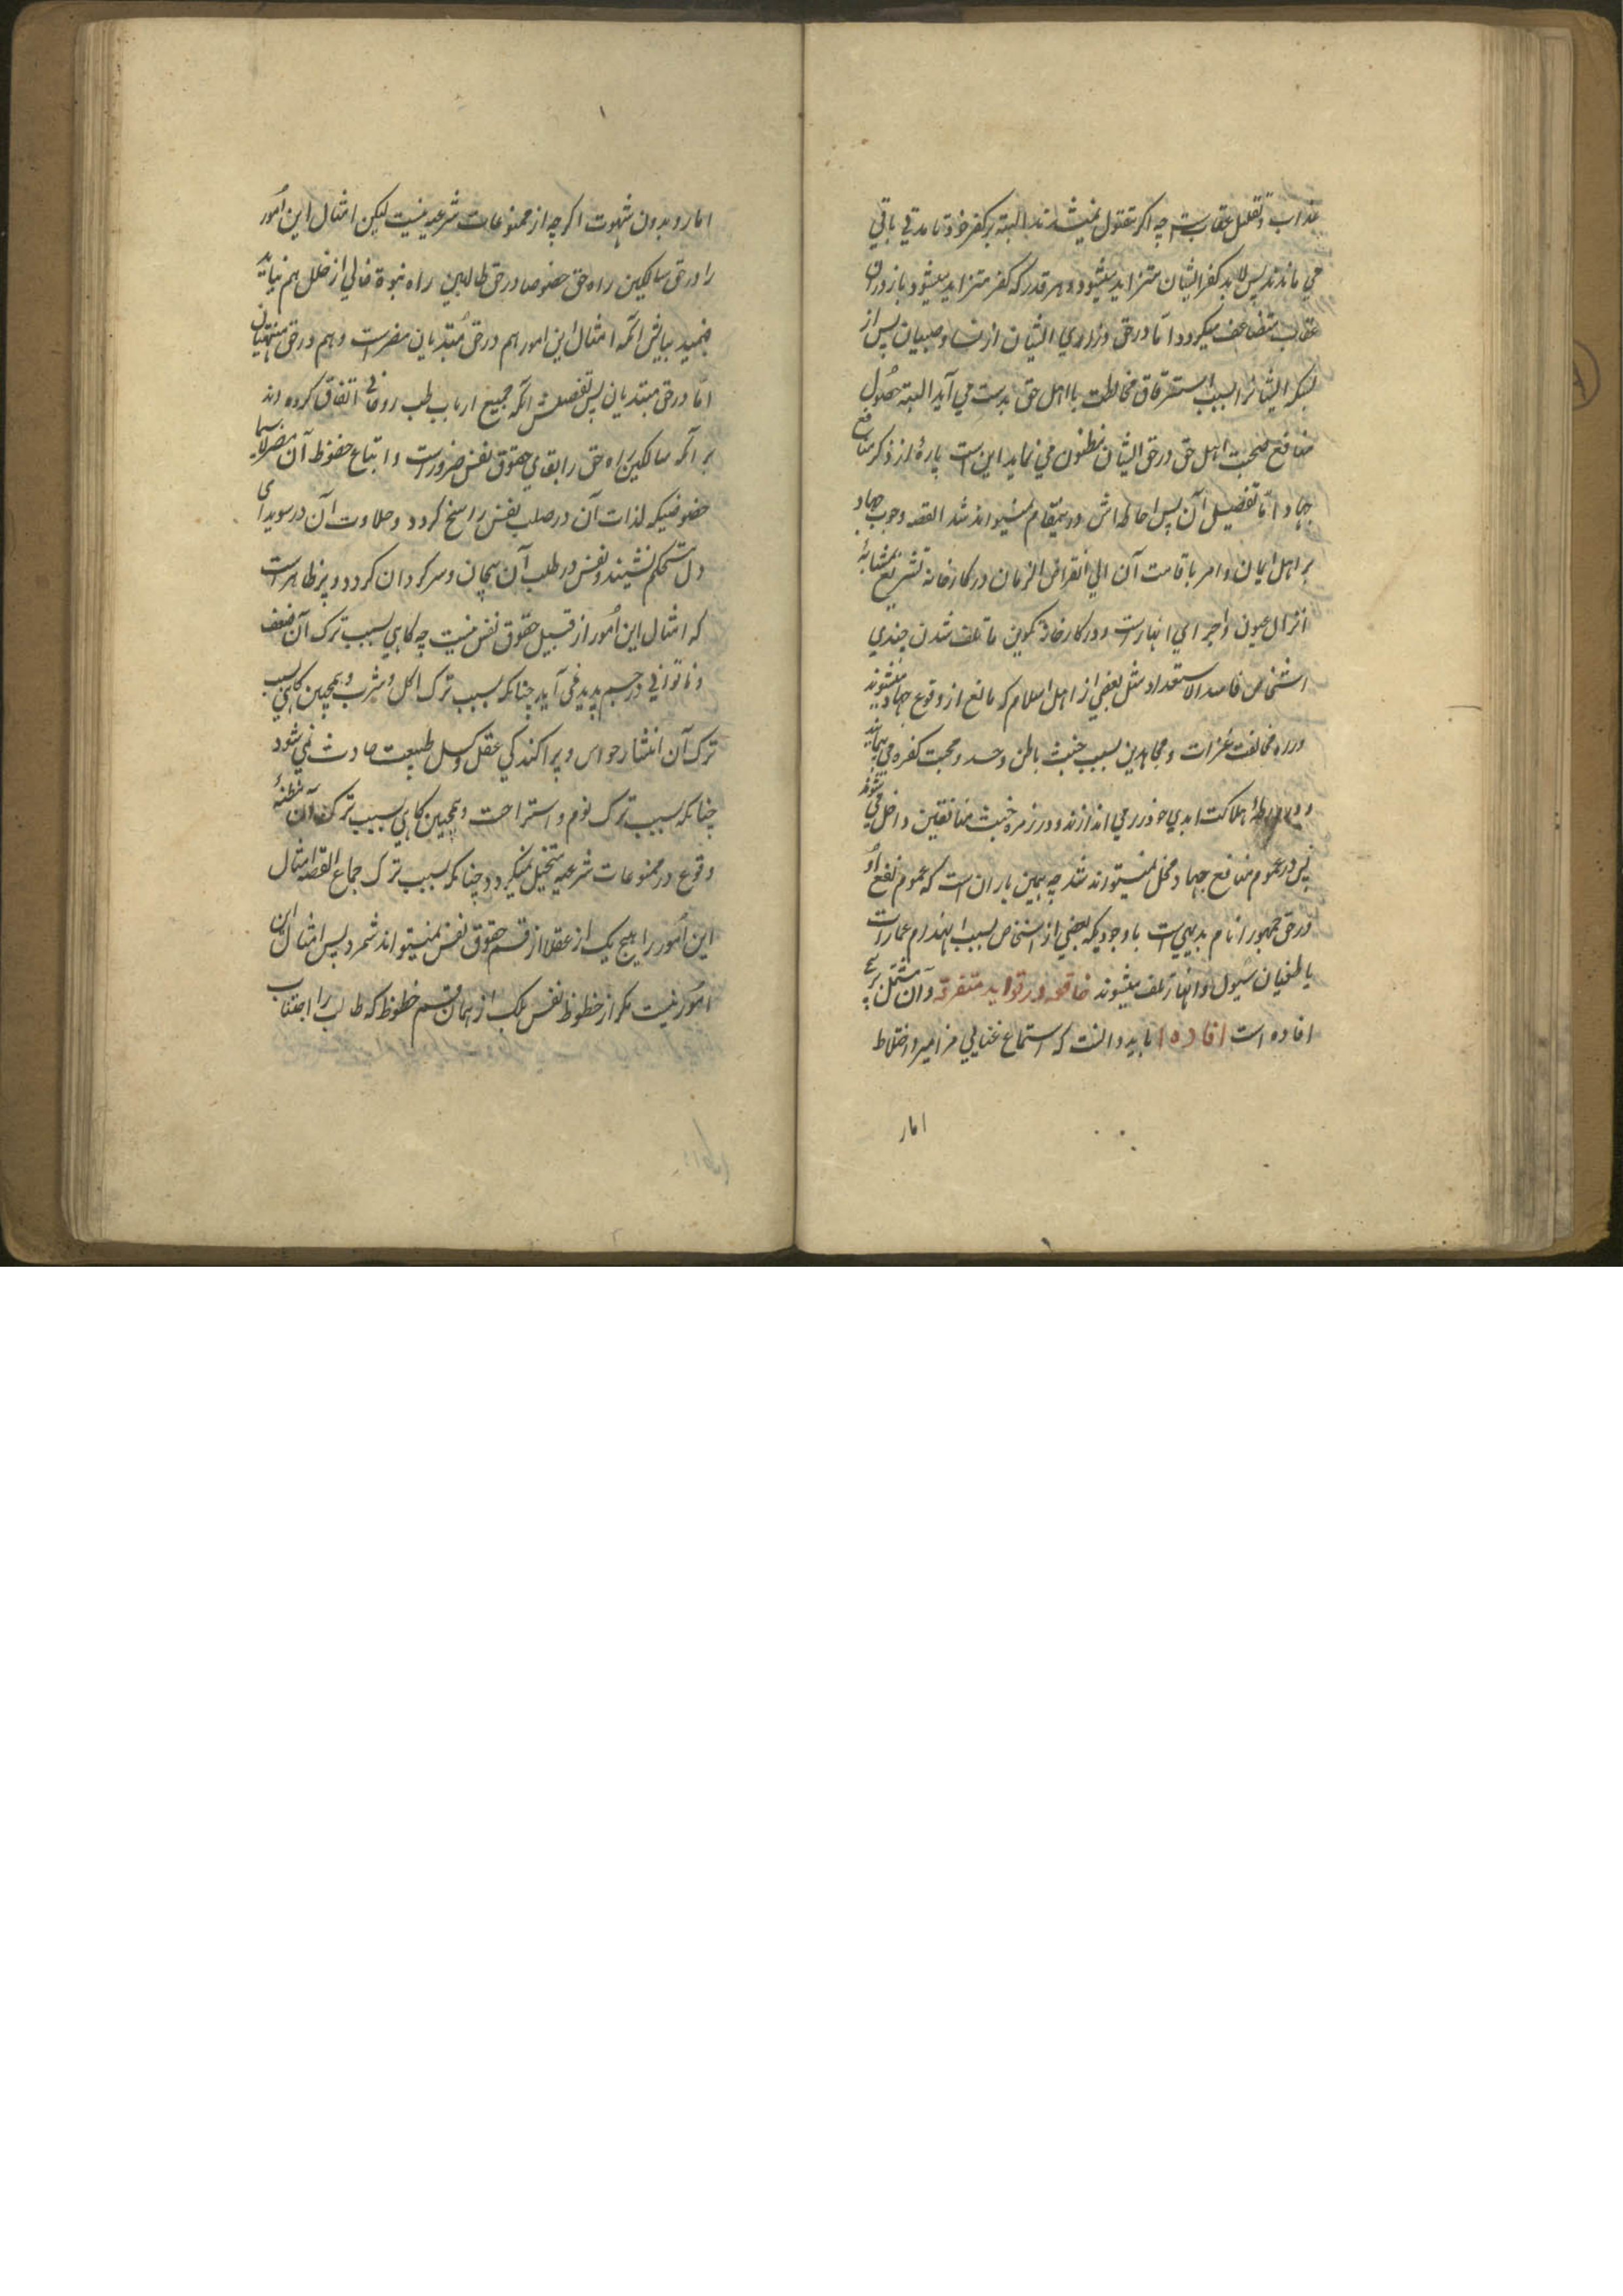 عذاب و تقلیل عقاب ست چه اکر مقتول نمیشدند البته بر کفر خود تا مدتی باقی
می ماندند پس لابد کفر ایشان متزاید میشود و هر قدر که کفر متزاید میشود باز در آن
عقاب متضاعف میکردد اما در حق ذراری ایشان از نسا و صبیان پس از
بسکه ایشانرا بسبب استرقاق مخالطت با اهل حق بدست می آید البته حصول
منافع صحبت اهل حق در حق ایشان مظنون می نماید این است پارهٔ از ذکر منافع
جهاد اما تفصیل آن پس احاطه اش درین مقام نمیتواند شد القصه وجوب جهاد
بر اهل ایمان و امر باقامت آن الی انقراض الزمان در کارخانه تشریع بمشابهٔ
انزال عیون و اجرای انهار است و در کارخانهٔ تکوین تا تلف شدن چندی
اشخاص فاسد الاستعداد مثل بعضی از اهل اسلام که مانع از وقوع جهاد میشوند
در راه مخالفت غزات و مجاهدین بسبب خبث باطن و حسد و محبت کفره می پیمایند
و در ورطهٔ هلاکت ابدی خود را می اندازند و در زمره خبث منافقین داخل می شوند
پس در عموم منافع جهاد مخل نمیتواند شد چه همین باران است که عموم نفع او
در حق جمهور انام بدیهی است باوجودیکه بعضی از اشخاص بسبب انهدام عمارات
یا طغیان سیول و انهار تلف میشوند خاتمه در فواید متفرقه و آن مشتمل بر سه
افاده است افاده ۱ باید دانست که استماع غنای بی مزامیر و اختلاط
امار
امارد بدون شهوت اکر چه از ممنوعات شرعیه نیست لیکن امثال این امور
را در حق سالکین راه حق خصوصا در حق طالبین راه نبوة خالی از خلل هم نباید
فهمید بیانش آنکه امثال این امور هم در حق مبتدیان مضر است و هم در حق منتهیان
اما در حق مبتدیان پس تفصیلش آنکه جمیع ارباب طب روحانی اتفاق کرده اند
بر آنکه سالکین راه حق را بقای حقوق نفس ضرور است و اتباع حظوظ آن مضر لاسیما
حظوظیکه لذات آن در صلب نفس راسخ کردد و حلاوت آن در سویدای
دل مستحکم نشیند و نفس در طلب آن هیجان و سرکردان کردد و پر ظاهر است
که امثال این امور از قبیل حقوق نفس نیست چه کاهی بسبب ترک آن ضعف
و ناتوانی در جسم پدید نمی آید چنانکه بسبب ترک اکل و شرب و همچنین کاهی بسبب
ترک آن انتشار حواس و پراکندکی عقل و کسل طبیعت حادث نمی شود
چنانکه بسبب ترک نوم و استراحت و همچنین کاهی بسبب ترک آن مظنهٔ
وقوع در ممنوعات شرعیه متخیل نمیکردد چنانکه بسبب ترک جماع القصه امثال
این امور را هیچ یک از عقلا از قسم حقوق نفس نمیتواند شمرد پس امثال این
امور نیست مکر از حظوظ نفس بلک از همان قسم حظوظ که طالب را اجتناب